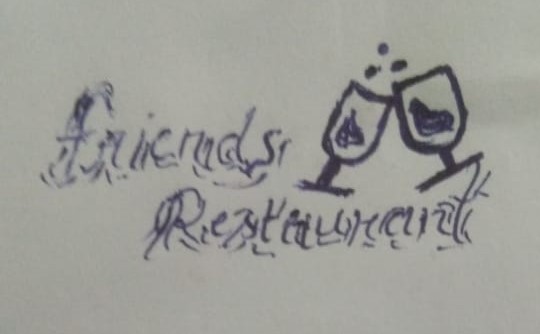 friends
Restaurant